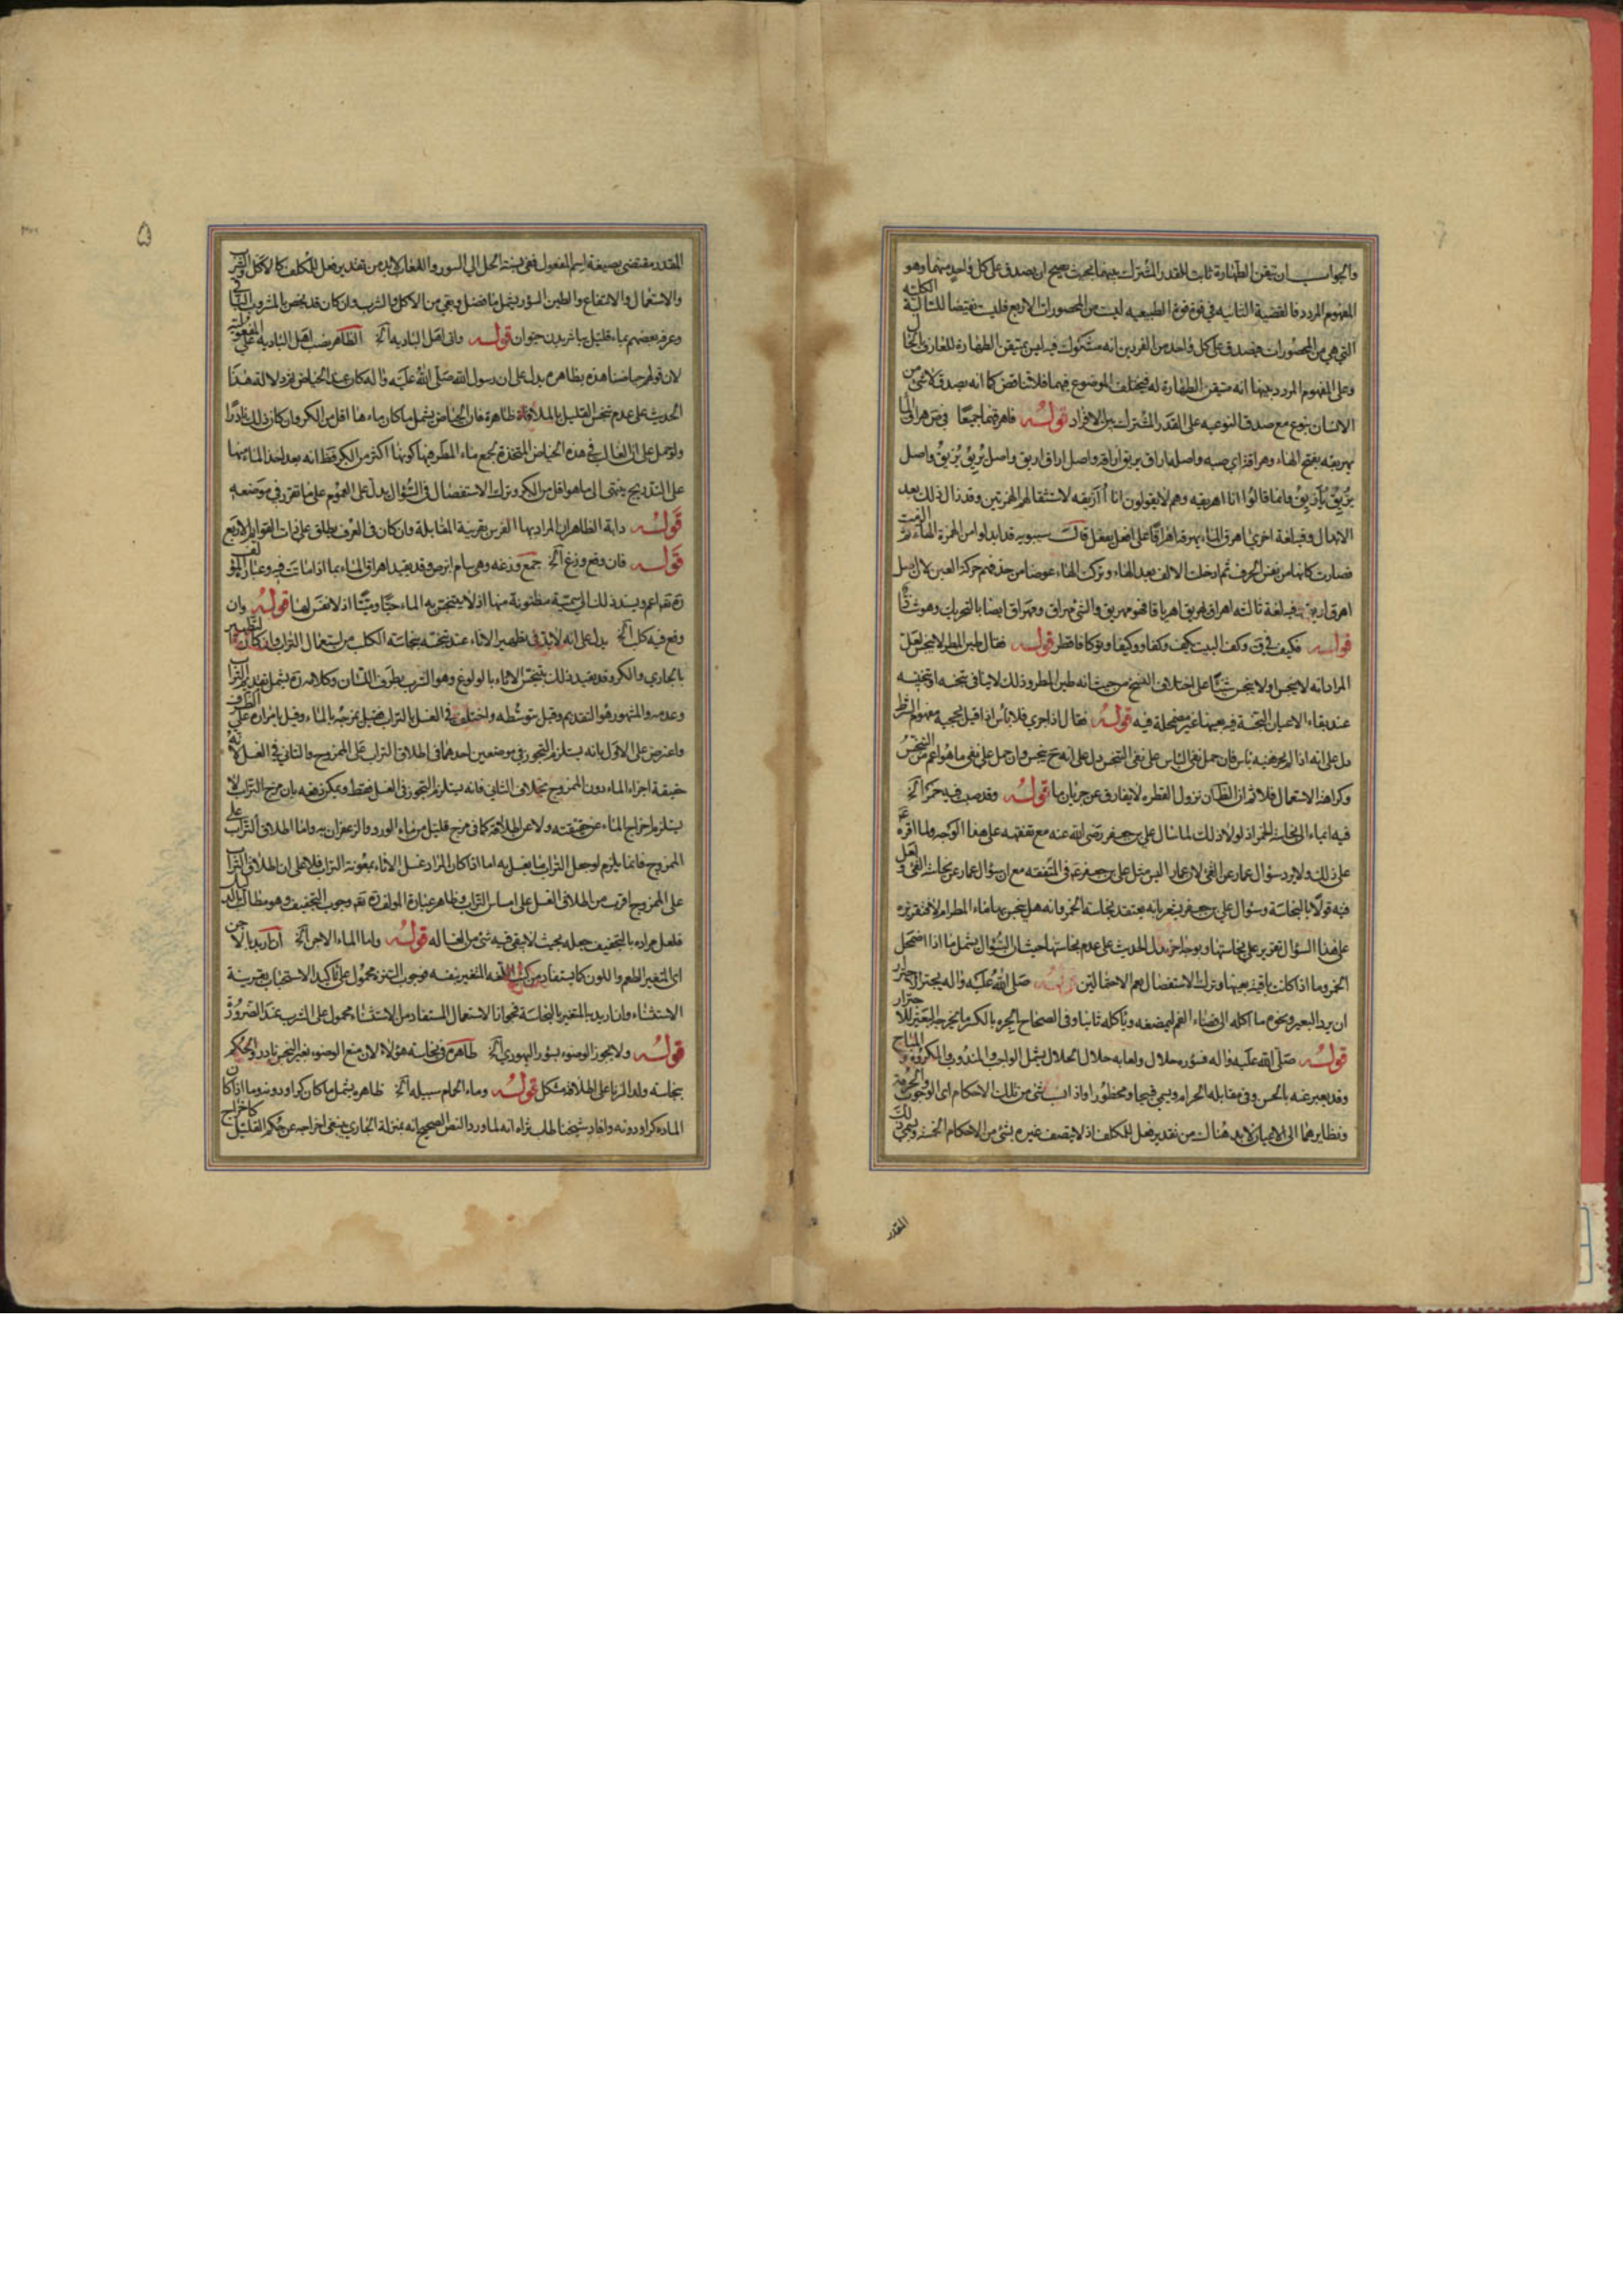 والجواب ان تيقن الطهارة ثابت للقدر المشترك بينهما بحيث يصح ان يصدق على كل واحد منهما وهو
المفهوم المردد فالقضية الثانيه في قوة الطبيعيه ليست من المحصورات الاربع فليست نقيضا للسالبة الكلية
التي هي من المحصورات فيصدق على كل واحد من الفردين انه مشكوك فيه ليس بمتيقن الطهارة
وعلى المفهوم المردد بينهما انه متيقن الطهارة له فيختلف الموضوع فيهما فلا تناقض كما انه يصدق لا شئ من
الانسان بنوع مع صدق النوعيه على القدر المشترك بين الافراد قوله فاهرقهما جميعا في ص هراق الماء
يهريقه بفتح الهاء وهراقة اي صبه واصله اراق يريق اراقة واصل اراق اريق واصل يُريق يُريِق واصل
يُريق يأريق وانما قالوا انا اهريقه وهم لا يقولون انا أأريقه لاستثقالهم الهمزتين وقد زال ذلك بعد
الابدال وفيه لغة اخرى اهرق الماء يهرقه اهراقا على افعل يفعل قال سيبويه قد ابدلوا من الهمزة الهاء ثم الزمت
فصارت كانها من نفس الحرف ثم ادخلت الالف بعد الهاء وتركت الهاء عوضا من حذفهم حركة العين لان اصل
اهرق اريق وفيه لغة ثالثه اهراق يهريق اهرياقا فهو مهريق والشئ مهراق ومهراق ايضا بالتحريك وهو شاذ
قوله فكيف في ق وكف البيت يكف وكفا ووكيفا وتوكافا قطر قوله فقال طين المطر لا ينجس لعل
المراد انه لا ينجس او لا ينجس شيئا على اختلاف النسخ من حيث انه طين المطر وذلك لا ينافي تنجسه او تنجيسه
عند بقاء الاعيان النجسة فيه بعينها غير مضمحلة فيه قوله فقال اذا جرى فلا باس اذا قيل بحجية مفهوم الشرط
دل على انه اذا لم يجر ففيه باس فان حمل نفي الباس على نفي التنجس دل على انه ح ينجس وان حمل على نفي ما هو اعم من التنجس
وكراهة الاستعمال فلا ثم ان الظ ان نزول القطره لا يفارق عن جريان ما قوله وقد صب فيه خمر الخ
فيه ايماء الى نجاسة الخمر اذ لولا ذلك لما سال علي بن جعفر رضى الله عنه مع تفقهه على هذا الوجه ولما اقره ع
على ذلك ولا يرد سؤال عمار عن القئ لان عمار ليس مثل علي بن جعفر ع في التفقه مع ان سؤال عمار عن نجاسة القئ ولعل
فيه قولا بالنجاسة وسؤال علي بن جعفر يشعر بانه يعتقد نجاسة الخمر وانه هل ينجس بها ماء المطر ام لا
على هذا السؤال تقرير على نجاستها وبوجه اخر يدل الحديث على عدم نجاستها حيث ان السؤال يشمل ما اذا اضمحل
الخمر وما اذا كانت باقية بعينها وترك الاستفصال يعم الاحتمالين قوله صلى الله عليه واله يجتر الاجترار
ان يرد البعير ونحوه ما اكله الى فضاء الفم ليمضغه وياكله ثانيا وفي الصحاح الجره بالكسر ما يخرجه البعير للاجترار
قوله صلى الله عليه واله فسؤره حلال ولعابه حلال الحلال يشمل الواجب والمندوب والمكروه والمباح
وقد يعبر عنه بالحسن وفي مقابله الحرام ويسمى قبيحا ومحظورا واذا نسب شئ من تلك الاحكام اى الوجوب والحرمة
ونظايرهما الى الاعيان لا بد هناك من تقدير فعل للمكلف اذ لا يتصف غيره بشئ من الاحكام الخمسة ويسمى ذلك
المقدر
۵
المقدر مقتضى بصيغة اسم المفعول ففي نسبة الحل الى السور واللعاب لا بد من تقدير فعل للمكلف كالاكل والشرب
والاستعمال والانتفاع والطين السؤر يشمل ما فضل وبقي من الاكل والشرب وان كان قد يخص بالمشروب
وعرفه بعضهم بماء قليل باشره بدن حيوان قوله واتى اهل الباديه الخ الظاهر نصب اهل الباديه على المفعولية
لان قولهم حياضنا هذه بظاهره يدل على ان رسول الله صلى الله عليه واله كان عند الحياض ثم دلالة هذا
الحديث على عدم تنجس القليل بالملاقاة ظاهرة فان الحياض يشمل ما كان ماءها اقل من الكر وان كان ذلك نادرا
ولو حمل على ان الغالب في هذه الحياض المتخذة لجمع ماء المطر فيها كونها اكثر من الكر فظ انه بعد اخذ الماء منها
على التدريج ينتهى الى ما هو اقل من الكر وترك الاستفصال في السؤال يدل على العموم على ما تقرر في موضعه
قوله دابة الظاهر ان المراد بها الفرس بقرينة المقابلة وان كان في العرف يطلق على ذات القوايم الاربع
قوله فان وقع وزغ الخ جمع وزغه وهى سام ابرص وقد يقيد اهراق الماء بما اذا ماتت فيه وعبارة المؤلف
ره تعم اعم ويسند ذلك الى سمية مظنونة منها اذ لا يتنجس به الماء حيا وميتا اذ لا نفس لها قوله وان
وقع فيه كلب الخ يدل على انه لا بد في تطهير الاناء عند تنجسه بنجاسة الكلب من استعمال التراب وان كان التطهير
بالجاري والكر وقد يقيد ذلك بتنجس الاناء بالولوغ وهو الشرب بطرف اللسان وكلامه ره يشمل تقديم التراب
وعدمه والمشهور هو التقديم وقيل بتوسطه واختلف في الغسل بالتراب فقيل بمزجه بالماء وقيل بامراره على الظرف
واعترض على الاول بانه يستلزم التجوز في موضعين احدهما في اطلاق التراب على الممزوج والثاني في الغسل لانه
حقيقة اجراء الماء دون الممزوج بخلاف الثاني فانه يستلزم التجوز في الغسل فقط ويمكن دفعه بان مزج التراب لا
يستلزم اخراج الماء عن حقيقته ولا عن اطلاقه كما في مزج قليل من ماء الورد والزعفران به واما اطلاق التراب على
الممزوج فانما يلزم لو جعل التراب ما يغسل به اما اذا كان المراد غسل الاناء بمعونة التراب فلا على ان اطلاق التراب
على الممزوج اقرب من اطلاق الغسل على امساس التراب وظاهر عبارة المولف ره تعم وجوب التجفيف وهو مطالب بالدليل
فلعل مراده بالتجفيف جعله بحيث لا يبقى فيه شئ من الغساله قوله واما الماء الاجن الخ ان اريد بالاجن
اى المتغير الطعم واللون كما يستفاد من كتب اللغه المتغير بنفسه فوجوب التنزه محمول على تاكيد الاستحباب بقرينة
الاستثناء وان اريد بالمتغير بالنجاسة فجواز الاستعمال المستفاد من الاستثناء محمول على الشرب عند الضرورة
قوله ولا يجوز الوضوء بسؤر اليهودي الخ ظاهره نجاسة هؤلاء لان منع الوضوء بغير النجس نادر والحكم
بنجاسة ولد الزنا على اطلاقه مشكل قوله وماء الحمام سبيله الخ ظاهره يشمل ما كان كرا ودونه وما اذا كان
الماده كرا ودونه وافاد شيخنا طاب ثراه انه لما ورد النص الصحيح انه بمنزلة الجاري ينبغى اخراجه عن حكم القليل كاخراج